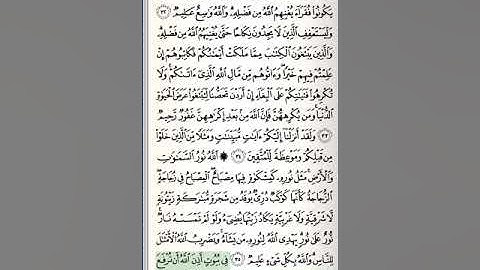 يَكُونُوا۟ فُقَرَآءَ يُغْنِهِمُ ٱللَّهُ مِن فَضْلِهِۦ ۗ وَٱللَّهُ وَٰسِعٌ عَلِيمٌ ٣٢
وَلْيَسْتَعْفِفِ ٱلَّذِينَ لَا يَجِدُونَ نِكَاحًا حَتَّىٰ يُغْنِيَهُمُ ٱللَّهُ مِن فَضْلِهِۦ ۗ
وَٱلَّذِينَ يَبْتَغُونَ ٱلْكِتَٰبَ مِمَّا مَلَكَتْ أَيْمَٰنُكُمْ فَكَاتِبُوهُمْ إِنْ
عَلِمْتُمْ فِيهِمْ خَيْرًا ۖ وَءَاتُوهُم مِّن مَّالِ ٱللَّهِ ٱلَّذِىٓ ءَاتَىٰكُمْ ۚ وَلَا
تُكْرِهُوا۟ فَتَيَٰتِكُمْ عَلَى ٱلْبِغَآءِ إِنْ أَرَدْنَ تَحَصُّنًا لِّتَبْتَغُوا۟ عَرَضَ ٱلْحَيَوٰةِ
ٱلدُّنْيَا ۚ وَمَن يُكْرِههُّنَّ فَإِنَّ ٱللَّهَ مِنۢ بَعْدِ إِكْرَٰهِهِنَّ غَفُورٌ رَّحِيمٌ
٣٣ وَلَقَدْ أَنزَلْنَآ إِلَيْكُمْ ءَايَٰتٍ مُّبَيِّنَٰتٍ وَمَثَلًا مِّنَ ٱلَّذِينَ خَلَوْا۟
مِن قَبْلِكُمْ وَمَوْعِظَةً لِّلْمُتَّقِينَ ٣٤ ۞ ٱللَّهُ نُورُ ٱلسَّمَٰوَٰتِ
وَٱلْأَرْضِ ۚ مَثَلُ نُورِهِۦ كَمِشْكَوٰةٍ فِيهَا مِصْبَاحٌ ۖ ٱلْمِصْبَاحُ فِى زُجَاجَةٍ ۖ
ٱلزُّجَاجَةُ كَأَنَّهَا كَوْكَبٌ دُرِّىٌّ يُوقَدُ مِن شَجَرَةٍ مُّبَٰرَكَةٍ زَيْتُونَةٍ
لَّا شَرْقِيَّةٍ وَلَا غَرْبِيَّةٍ يَكَادُ زَيْتُهَا يُضِىٓءُ وَلَوْ لَمْ تَمْسَسْهُ نَارٌ ۚ
نُّورٌ عَلَىٰ نُورٍ ۗ يَهْدِى ٱللَّهُ لِنُورِهِۦ مَن يَشَآءُ ۚ وَيَضْرِبُ ٱللَّهُ ٱلْأَمْثَٰلَ
لِلنَّاسِ ۗ وَٱللَّهُ بِكُلِّ شَىْءٍ عَلِيمٌ ٣٥ فِى بُيُوتٍ أَذِنَ ٱللَّهُ أَن تُرْفَعَ